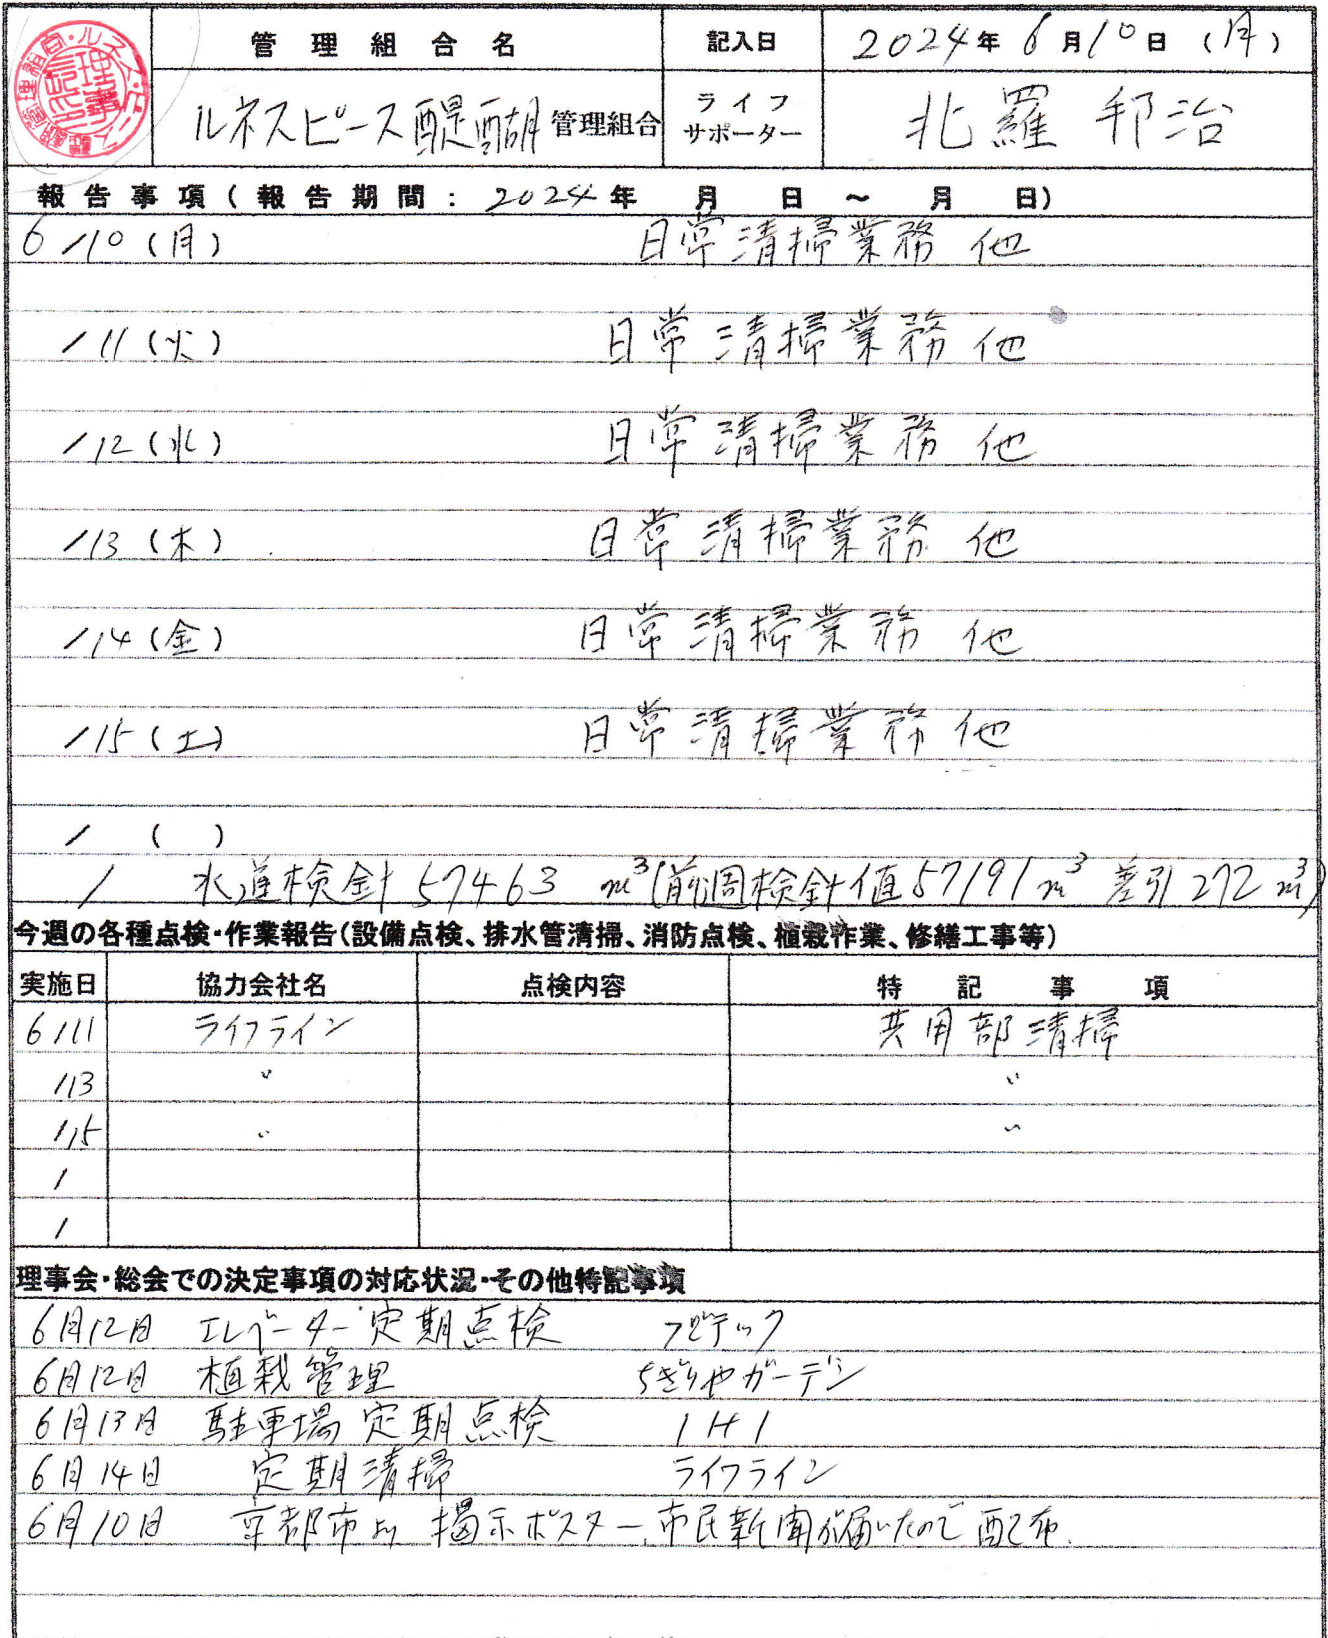 管理組合名 記入日 2024年6月10日(月)
ルネスピース醍醐管理組合 ライフサポーター 北羅 邦治
報告事項(報告期間:2024年 月 日 ~ 月 日)
6/10(月) 日常清掃業務 他
/11(火) 日常清掃業務 他
/12(水) 日常清掃業務 他
/13(木) 日常清掃業務 他
/14(金) 日常清掃業務 他
/15(土) 日常清掃業務 他
/ ( )
/ 水道検針 57463 m³(前週検針値57191m³ 差引272m³)
今週の各種点検・作業報告(設備点検、排水管清掃、消防点検、植栽作業、修繕工事等)
実施日 協力会社名 点検内容 特記事項
6/11 ライフライン 共用部清掃
/13 〃 〃
/15 〃 〃
/
/
理事会・総会での決定事項の対応状況・その他特記事項
6月12日 エレベーター定期点検 フジテック
6月12日 植栽管理 ちぎりやガーデン
6月13日 駐車場定期点検 IHI
6月14日 定期清掃 ライフライン
6月10日 京都市より 掲示ポスター、市民新聞が届いたので配布.